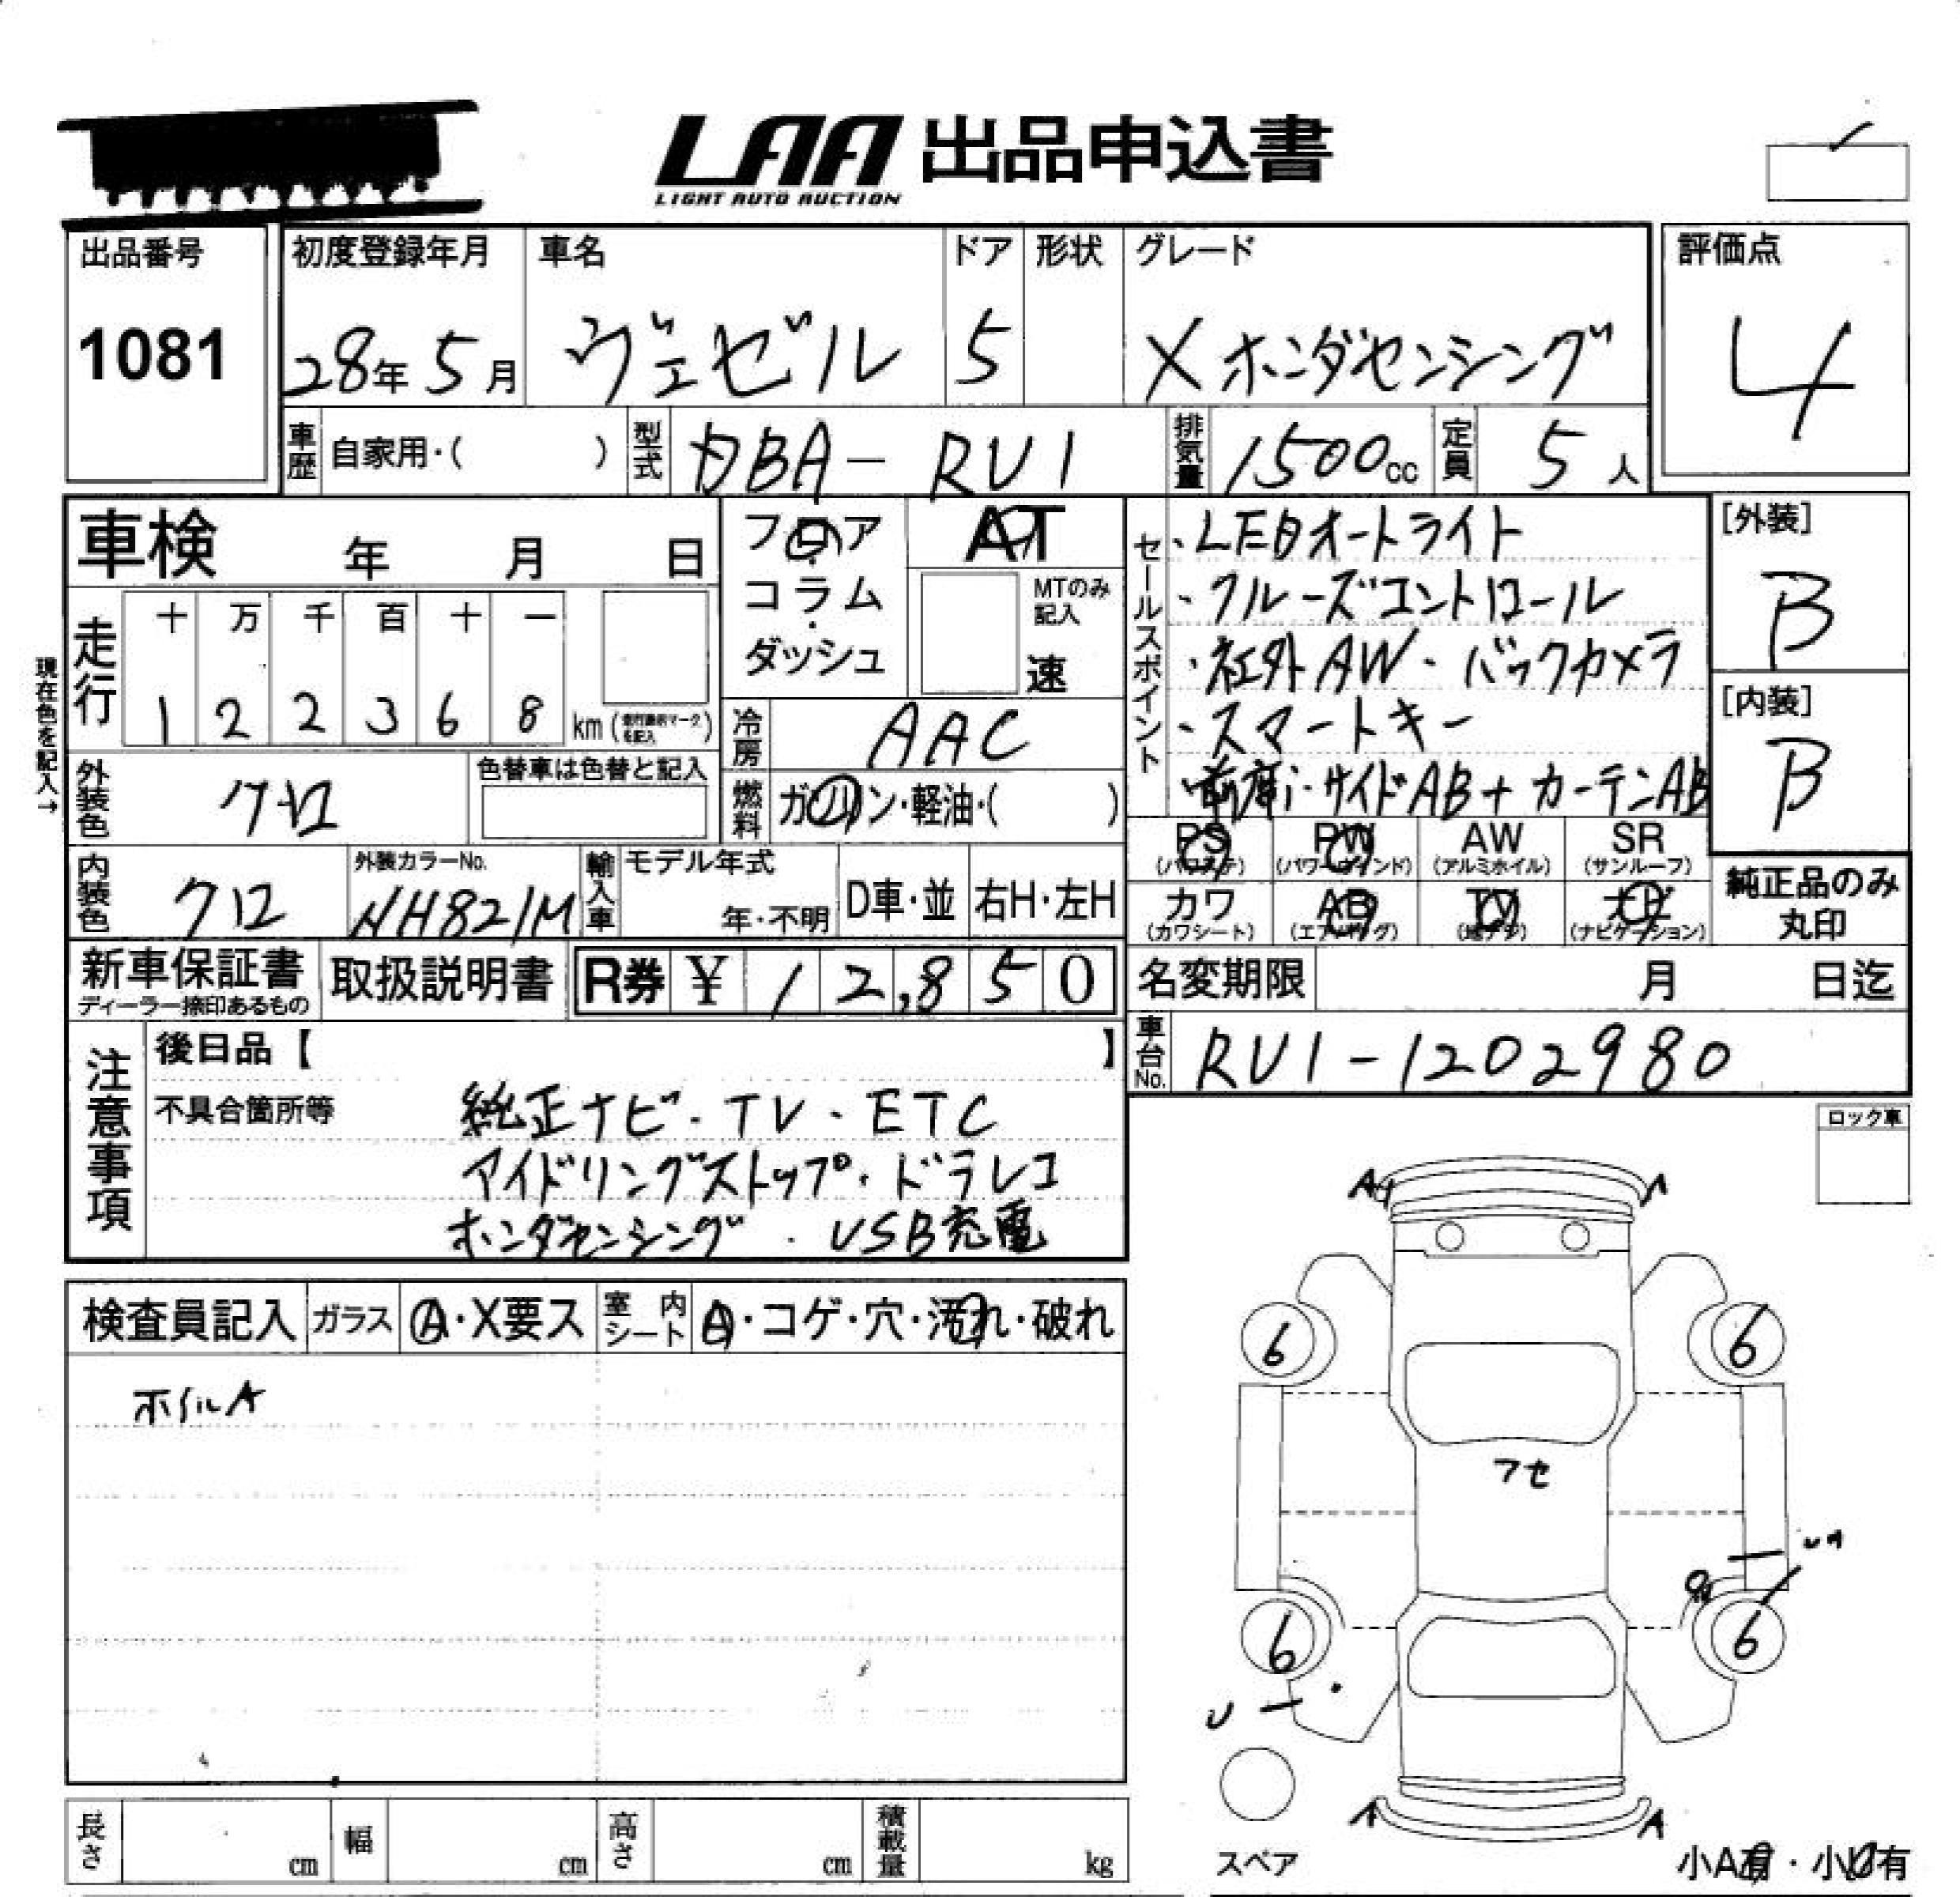 LAA 出品申込書
LIGHT AUTO AUCTION
出品番号
1081
初度登録年月
28年5月
車名
ヴェゼル
ドア
5
形状
グレード
X ホンダセンシング
評価点
4
車歴
自家用・( )
型式
DBA- RU1
排気量
1500cc
定員
5人
車検 年 月 日
フロア
コラム
ダッシュ
AT
MTのみ
記入
速
セールスポイント
・LEDオートライト
・クルーズコントロール
・社外AW・バックカメラ
・スマートキー
・サイドAB+カーテンAB
[外装]
B
[内装]
B
現在色を記入→
走行
十 万 千 百 十 一
1 2 2 3 6 8 km
冷房
AAC
外装色
クロ
色替車は色替と記入
燃料
ガソリン・軽油・( )
PS
(パワステ)
PW
(パワーウインド)
AW
(アルミホイル)
SR
(サンルーフ)
内装色
クロ
外装カラーNo.
NH821M
輸入車
モデル年式
年・不明
D車・並
右H・左H
カワ
(カワシート)
AB
(エアバッグ)
TV
(地デジ)
ナビ
(ナビゲーション)
純正品のみ
丸印
新車保証書
ディーラー捺印あるもの
取扱説明書
R券 ¥ 12,850
名変期限 月 日迄
車台No.
RU1-1202980
注意事項
後日品【 】
不具合箇所等
純正ナビ・TV・ETC
アイドリングストップ・ドラレコ
ホンダセンシング・USB充電
ロック車
検査員記入
ガラス
A・X要ス
室内シート
A・コゲ・穴・汚れ・破れ
ホイルA
A
A
6
6
フセ
6
6
U
A
A
スペア
小A有・小U有
長さ cm
幅 cm
高さ cm
積載量 kg